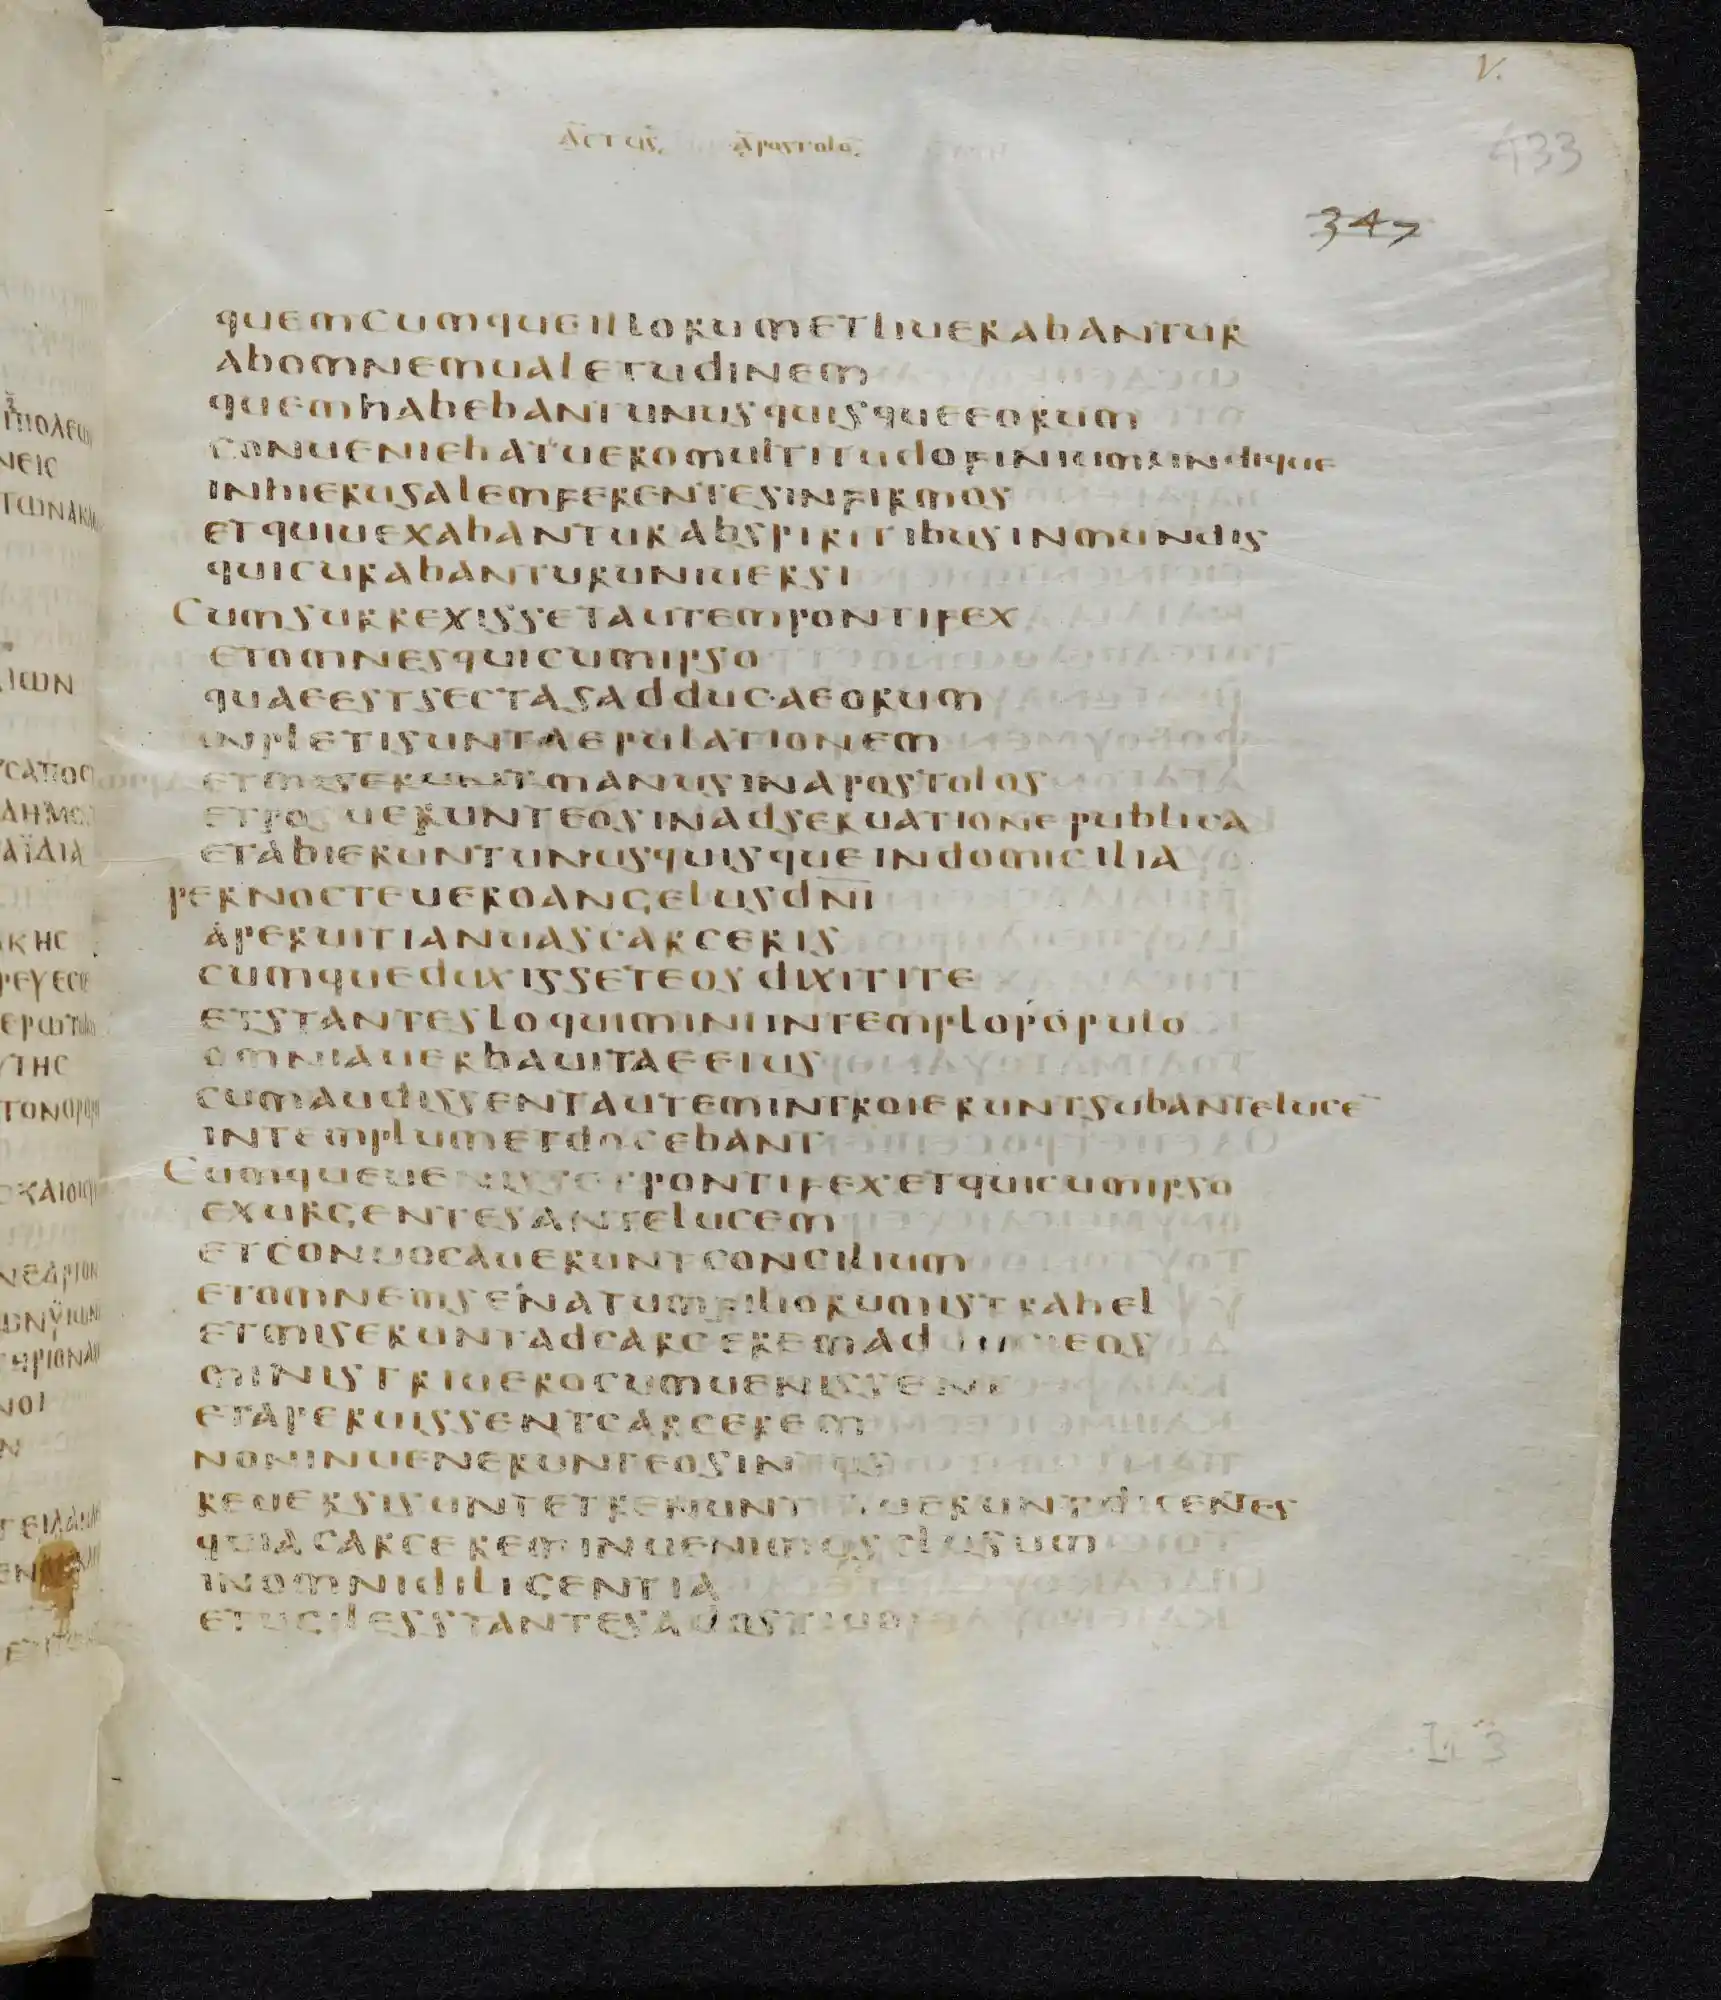 V.
Actus. Apostolo.
433
347
quemcumqueillorumetliuerabantur
abomnemualetudinem
quemhabebantunusquisqueeorum
conueniebatueromultitudofiniumundique
inhierusalemferentesinfirmos
etquiuexabanturabspiritibusinmundis
quicurabanturuniuersi
Cumsurrexissetautempontifex
etomnesquicumipso
quaeestsectasadducaeorum
inpletisuntaepulationem
etmiseruntmanusinapostolos
etposuerunteosinadseruationepublica
etabieruntunusquisqueindomicilia
pernocteueroangelusdni
aperuitianuascarceris
cumqueduxisseteosdixitite
etstantesloquiminiintemplopopulo
omniauerbauitaeeius
cumaudissentautemintroieruntsubanteluce
intemplumetdocebant
Cumqueuenissetpontifexetquicumipso
exurgentesantelucem
etconuocaueruntconcilium
etomnemsenatumfiliorumistrahel
etmiseruntadcarceremadducieos
ministriuerocumuenissent
etaperuissentcarcerem
noninuenerunteosintus
reuersisuntetrenuntiaueruntdicentes
quiacarcereminuenimusclusum
inomnidiligentia
etuigilesstantesadostia